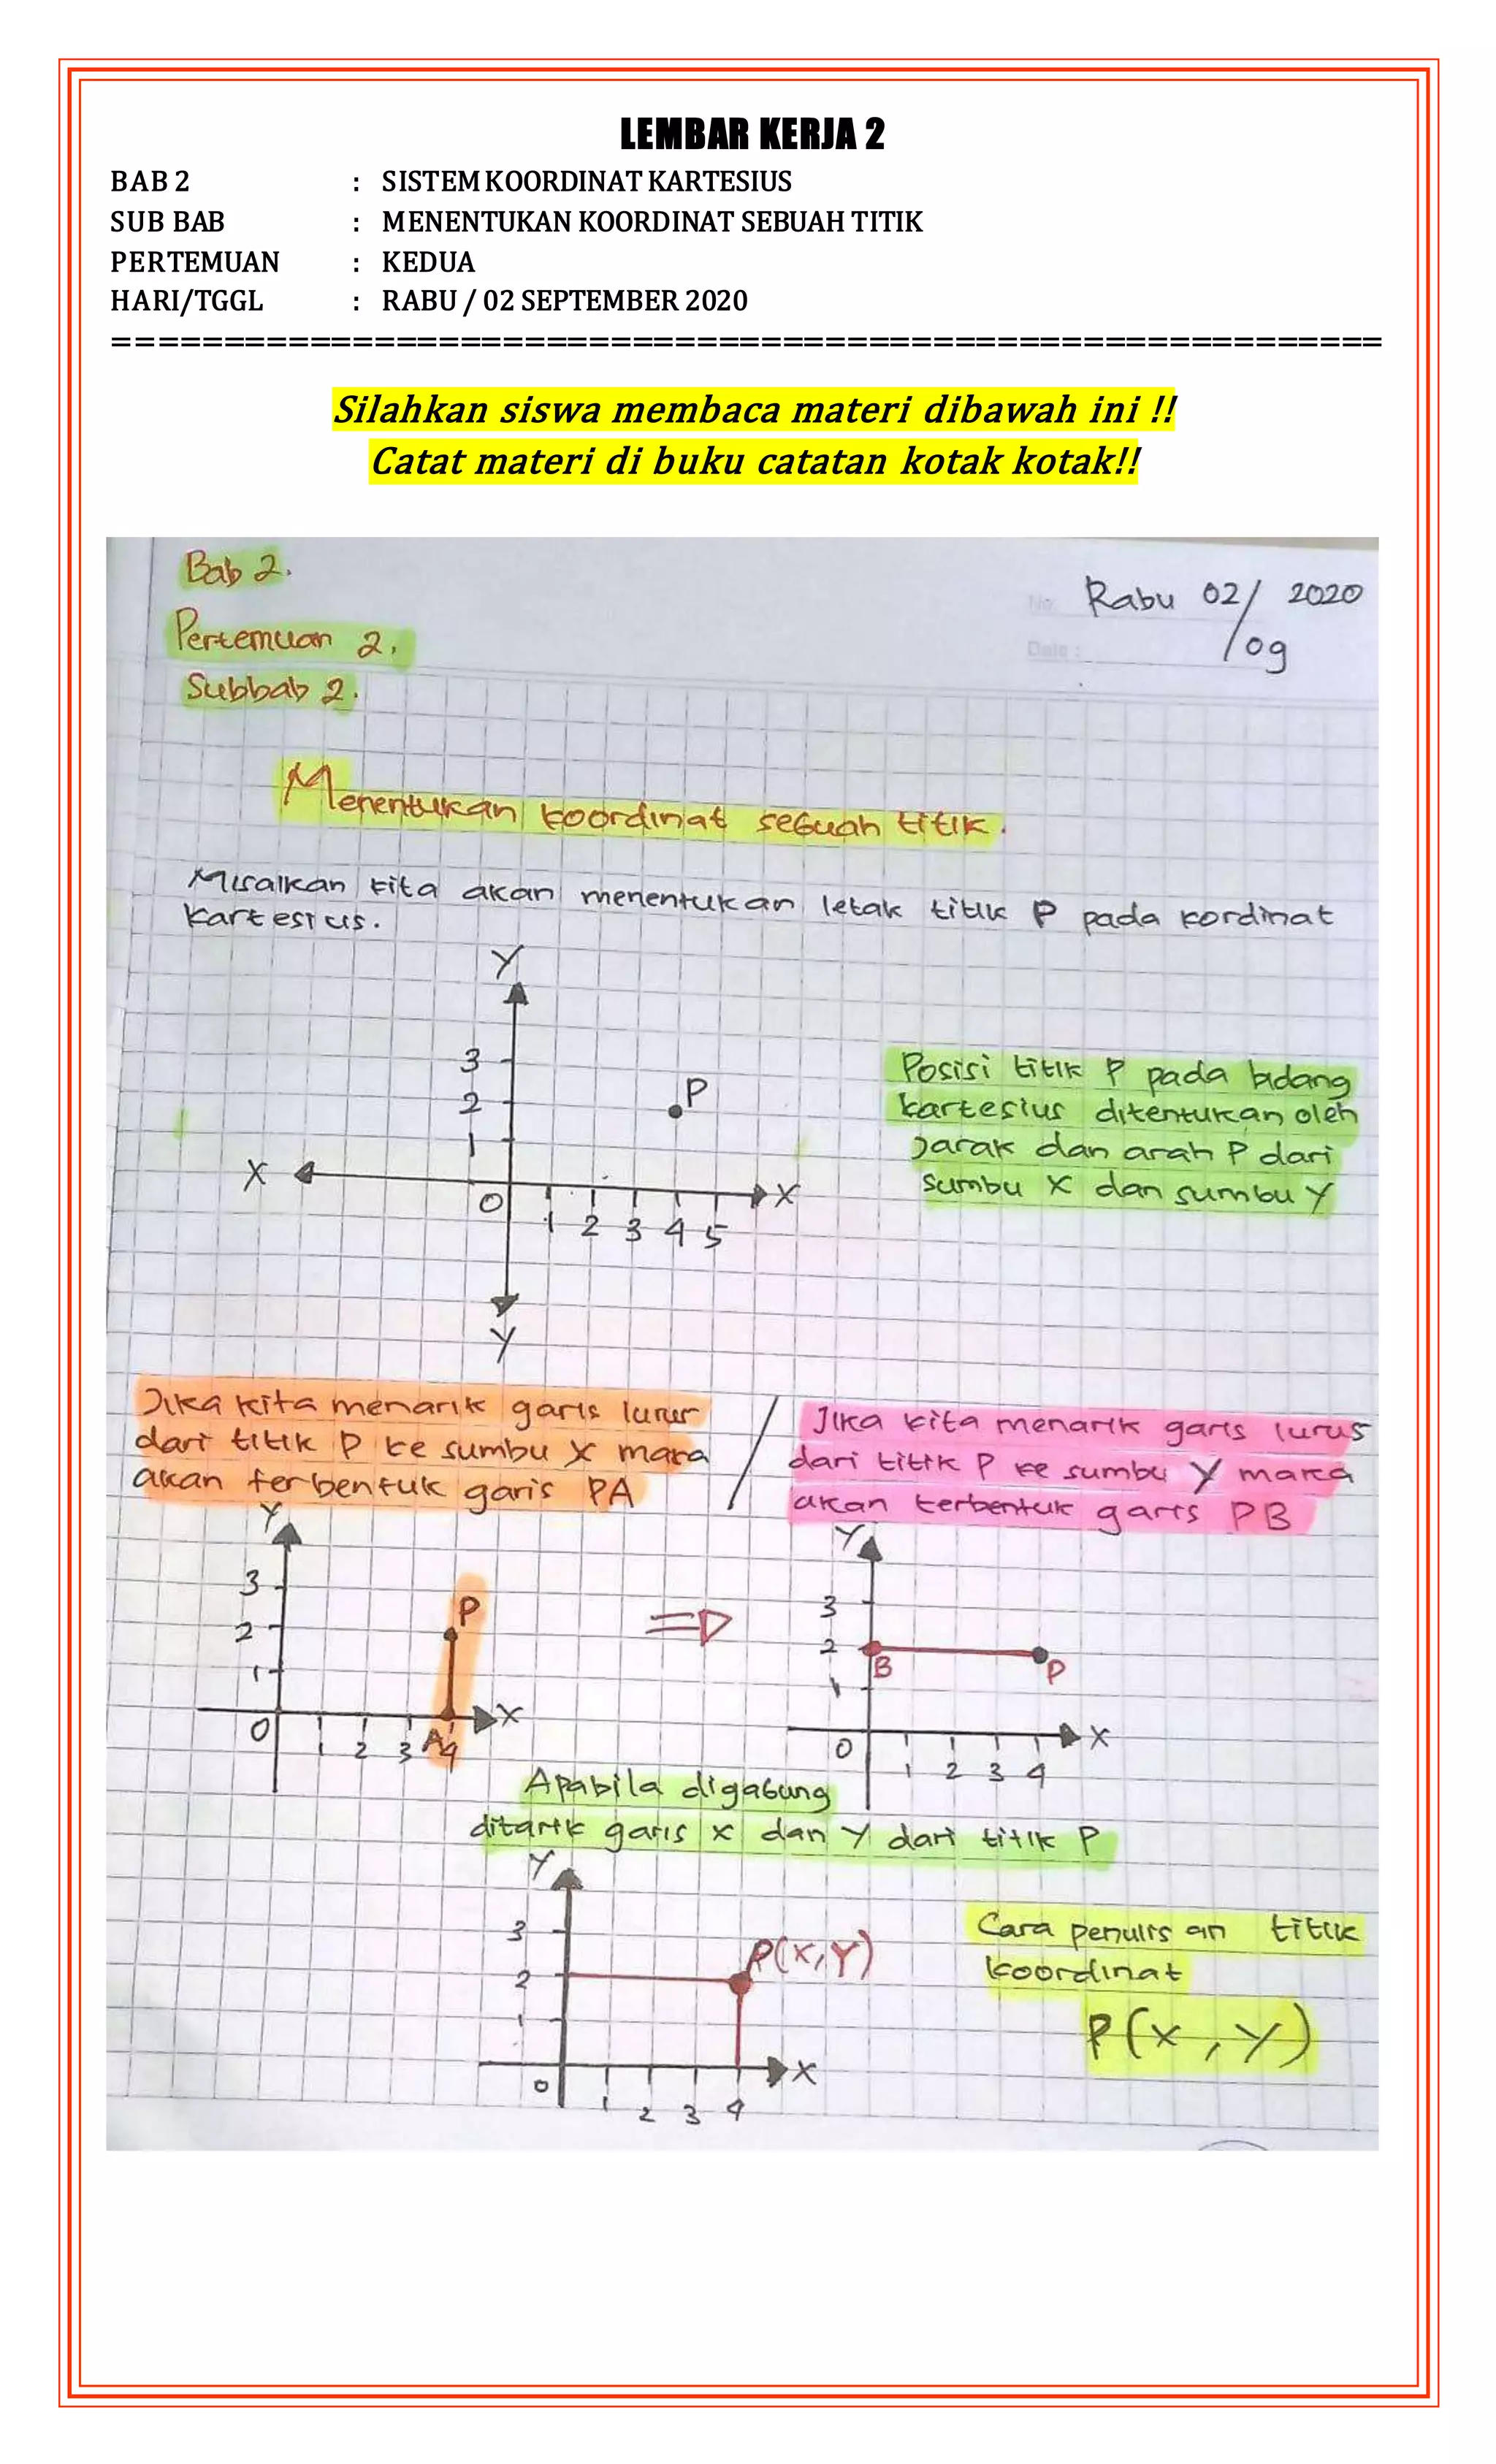 LEMBAR KERJA 2
BAB 2 : SISTEM KOORDINAT KARTESIUS
SUB BAB : MENENTUKAN KOORDINAT SEBUAH TITIK
PERTEMUAN : KEDUA
HARI/TGGL : RABU / 02 SEPTEMBER 2020
===========================================================
Silahkan siswa membaca materi dibawah ini !!
Catat materi di buku catatan kotak kotak!!
Bab 2.
No.
Rabu 02/09 2020
Date :
Pertemuan 2.
Subbab 2.
Menentukan koordinat sebuah titik.
Misalkan kita akan menentukan letak titik P pada kordinat
kartesius.
Y
3
2
1
P
X
X
0
1 2 3 4 5
Y
Posisi titik P pada bidang
kartesius ditentukan oleh
jarak dan arah P dari
sumbu X dan sumbu Y
Jika kita menarik garis lurus
dari titik P ke sumbu X maka
akan terbentuk garis PA
/
Jika kita menarik garis lurus
dari titik P ke sumbu Y maka
akan terbentuk garis PB
Y
3
2
1
P
X
0
1 2 3 A 4
Y
3
2
1
B
P
X
0
1 2 3 4
Apabila digabung
ditarik garis x dan y dari titik P
Y
3
2
1
P(X,Y)
X
0
1 2 3 4
Cara penulisan titik
koordinat
P(x,y)